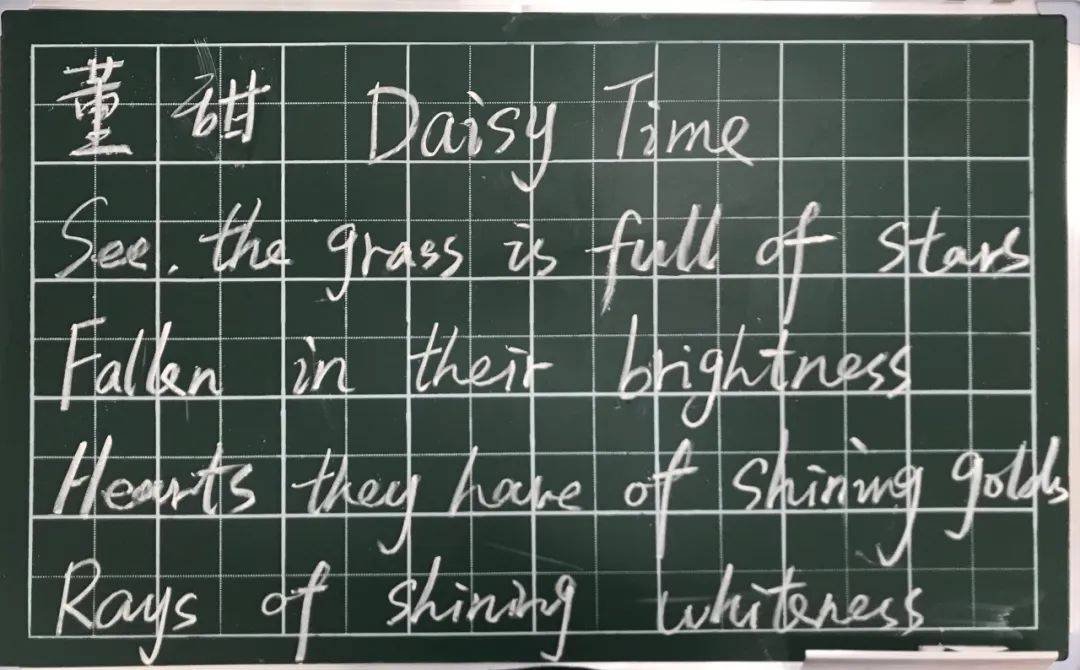 董甜 Daisy Time
See, the grass is full of stars
Fallen in their brightness
Hearts they have of shining golds
Rays of shining whiteness